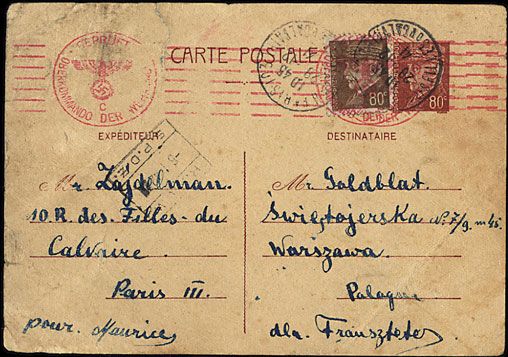 GEPRÜFT
OBERKOMMANDO DER WEHRMACHT
C
CARTE POSTALE
80c
80c
EXPÉDITEUR
DESTINATAIRE
Mr. Zajdelman.
10. R. des. Filles-du
Calvaire.
Paris III.
pour. Maurice
Mr Goldblat.
Świętojerska №. 7/9. m 45.
Warszawa.
dla. Franszteter